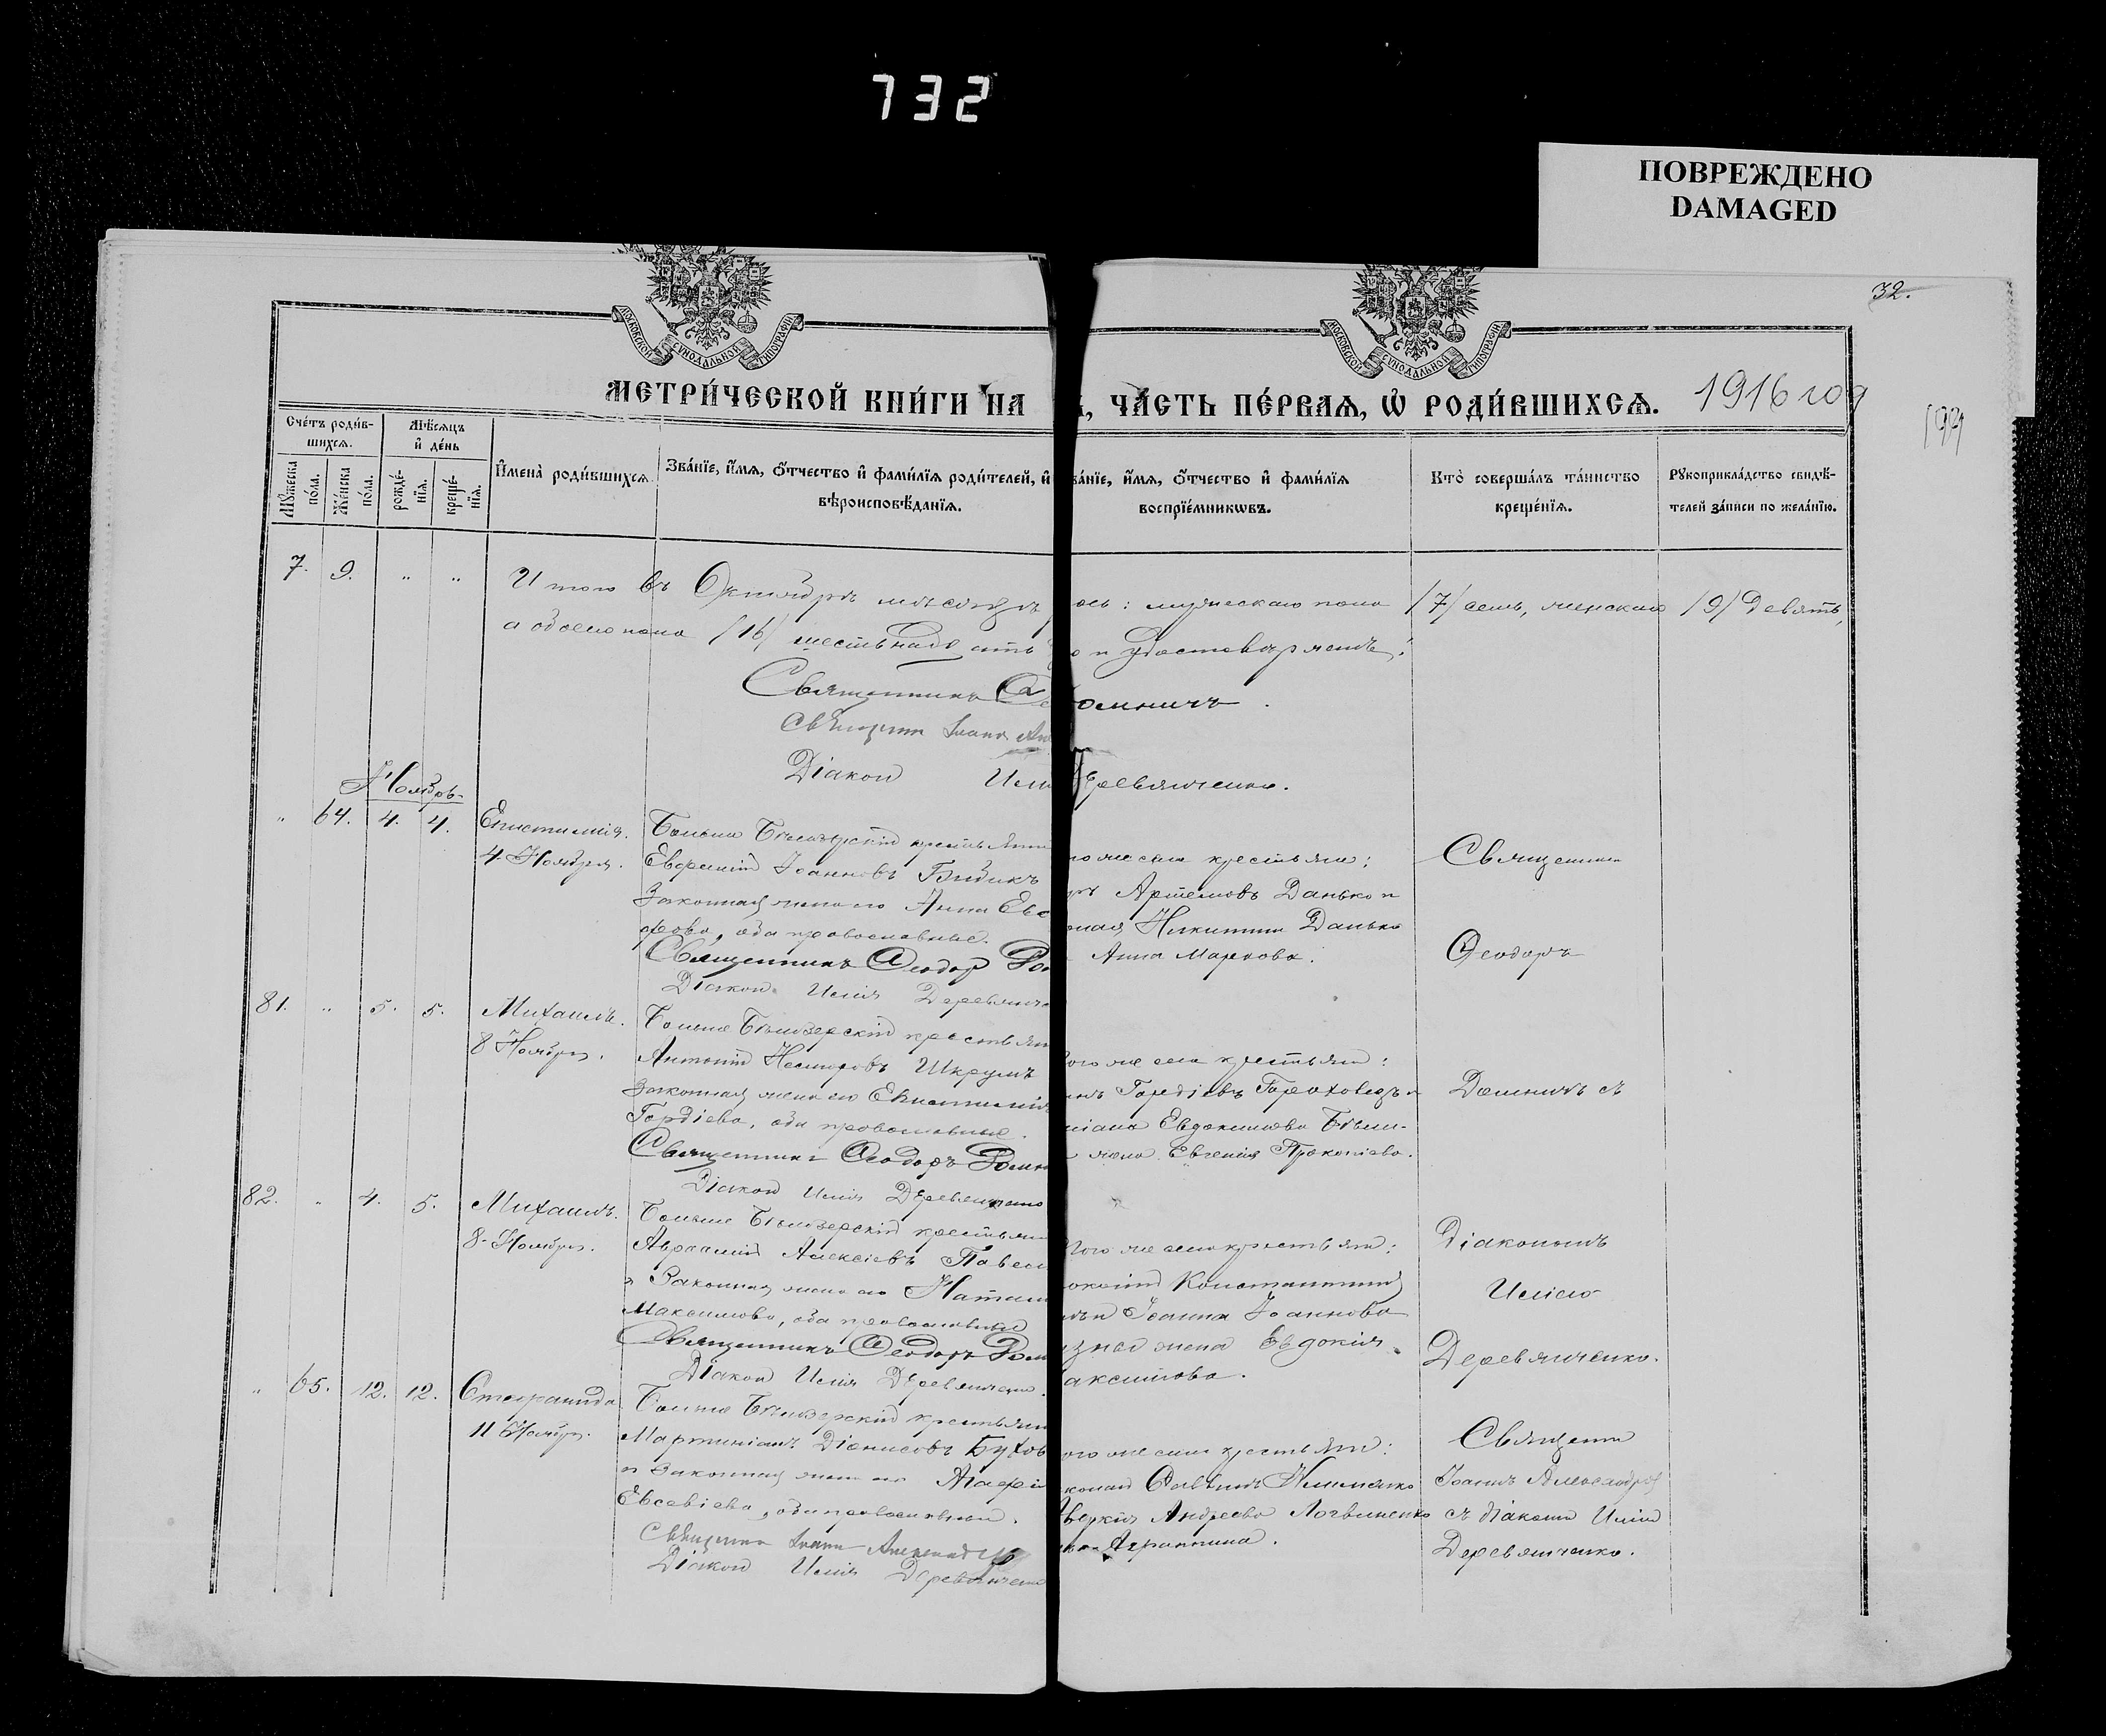 732
ПОВРЕЖДЕНО
DAMAGED
32.
МОСКОВСКОЙ СУНОДАЛЬНОЙ ТИПОГРАФІИ
МОСКОВСКОЙ СУНОДАЛЬНОЙ ТИПОГРАФІИ
МЕТРИ́ЧЕСКОЙ КНИ́ГИ НА
, ЧА́СТЬ ПЕ́РВАЯ, Ѡ РОДИ́ВШИХСЯ. 1916 год
Сче́тъ роди́в-
шихся.
Мѣ́сяцъ
и де́нь
Му́жеска
по́ла.
Же́нска
по́ла.
рожде́-
нїя.
креще́-
нїя.
Имена̀ роди́вшихся.
Зва́нїе, и́мя, о́тчество и фами́лїя роди́телей, и
вѣроисповѣ́данїя.
ва́нїе, и́мя, о́тчество и фами́лїя
воспрїе́мниковъ.
Кто̀ соверша́лъ та́инство
креще́нїя.
Рукоприкла́дство свидѣ́-
телей за́писи по жела́нїю.
7. 9. " "
Итого въ Октябрѣ мѣсяцѣ
ось: мужескаго пола /7/ семь, женскаго /9/ девять,
а обоего пола /16/ шестьнадцать
и удостовѣряемъ:
Священникъ Ѳе
омничъ.
Священникъ Іоаннъ Ал
Діаконъ Илі
Деревянченко.
Ноябрь
" 64. 4. 4. Епистимія.
4 Ноября.
Больше Бѣлозерскій крестьянин
Евфимій Іоанновъ Бидикъ
Законная жена его Анна Евс
фова, оба православные.
Священникъ Ѳеодоръ Ром
Діаконъ Илія Деревянче
го же села крестьяне:
Артемовъ Данько и
Никитина Данько
Анна Маркова.
Священник
Ѳеодоръ
81. " 5. 5. Михаилъ.
8 Ноября.
Больше Бѣлозерскій крестьян
Антоній Несторовъ Шкрумъ
Законная жена его Епистимія
Гордіева, оба православные.
Священникъ Ѳеодоръ Ромн
Діаконъ Илія Деревянченко
ого же села крестьяне:
Гордіевъ Гороховецъ и
Евдокимова Бѣли-
жена Евгенія Прокопіева.
Домничъ съ
82. " 4. 5. Михаилъ.
8 Ноября.
Больше Бѣлозерскій крестьян
Авраамій Алексіевъ Павел
и Законная жена его Натал
Максимова, оба православные
Священникъ Ѳеодоръ Ром
Діаконъ Илія Деревянченко.
Того же села крестьяне:
Константинъ
Іоанна Іоаннова
жена Евдокія
аксимова.
Діакономъ
Иліею
Деревянченко.
" 65. 12. 12. Стефанида
11 Ноября.
Больше Бѣлозерскій крестьян
Мартиніанъ Діонисовъ Бухов
и Законная жена его Агафі
Евсевіева, оба православные.
Священникъ Іоаннъ Александров
Діаконъ Илія Деревянченко
ого же села крестьяне:
Клименко
Андреева Логвиненко
Агриппина.
Священник
Іоаннъ Александров
съ діакономъ Иліею
Деревянченко.